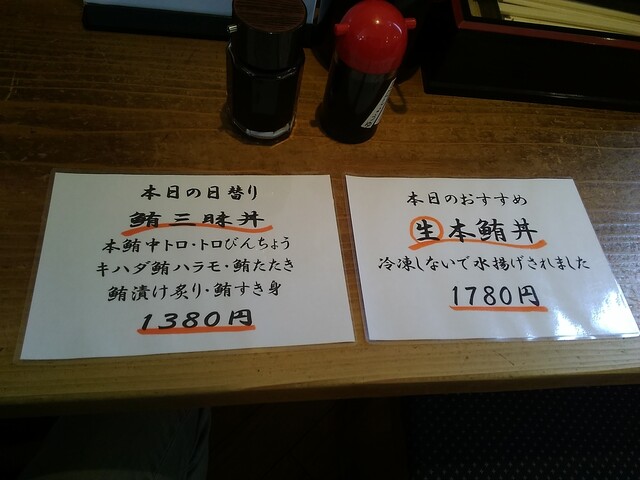 本日の日替り
鮪三昧丼
本鮪中トロ・トロびんちょう
キハダ鮪ハラモ・鮪たたき
鮪漬け炙り・鮪すき身
1380円
本日のおすすめ
生本鮪丼
冷凍しないで水揚げされました
1780円